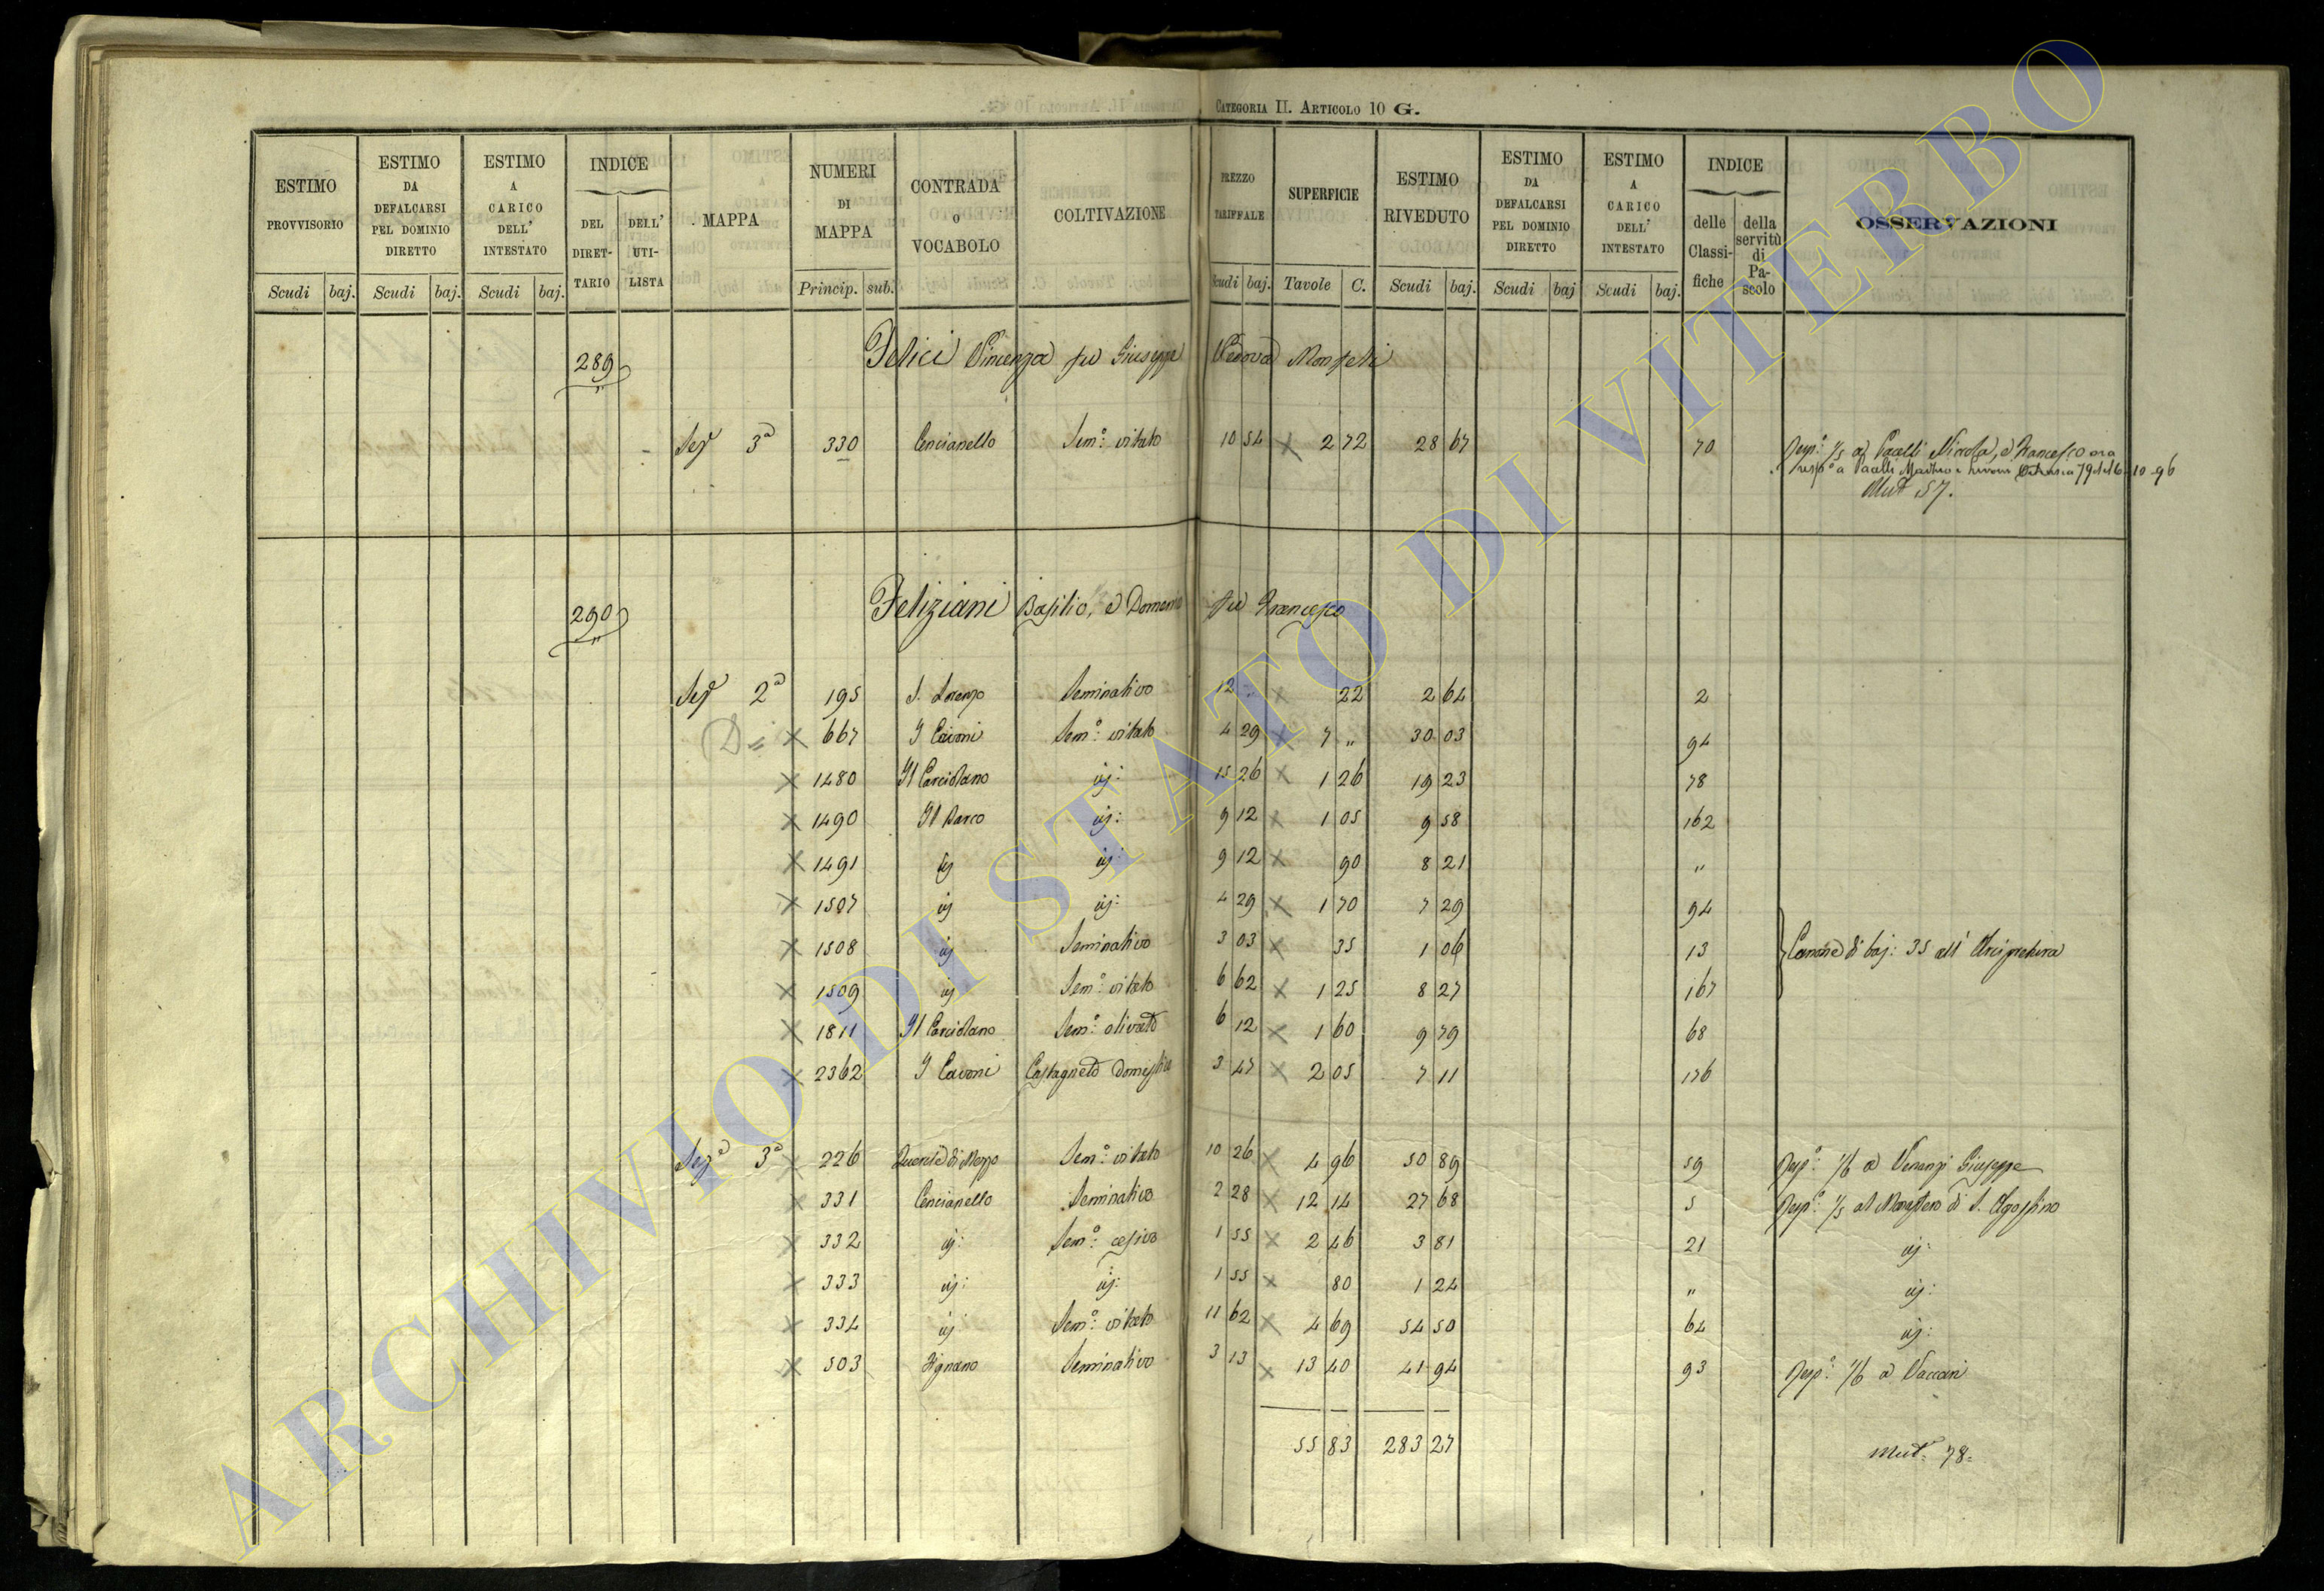 CATEGORIA II. ARTICOLO 10 G.
ESTIMO PROVVISORIO Scudi baj.
ESTIMO DA DEFALCARSI PEL DOMINIO DIRETTO Scudi baj.
ESTIMO A CARICO DELL' INTESTATO Scudi baj.
INDICE DEL DIRETTARIO DELL' UTILISTA
MAPPA
NUMERI DI MAPPA Princip. sub.
CONTRADA O VOCABOLO
COLTIVAZIONE
PREZZO TARIFFALE Scudi baj.
SUPERFICIE Tavole C.
ESTIMO RIVEDUTO Scudi baj.
ESTIMO DA DEFALCARSI PEL DOMINIO DIRETTO Scudi baj
ESTIMO A CARICO DELL' INTESTATO Scudi baj.
INDICE delle Classifiche della servitù di Pascolo
OSSERVAZIONI
289 Felici Vincenza fu Giuseppe Vedova
Sez.e 3a 330 Cencianello Sem.o vitato 10 54 X 2 72 28 67 70 Resp.o 1/5 a Pacelli Nicola, e Francesco ora
resp.o a Pacelli
Mut 57.
290 Feliziani Basilio, e Domenico fu Francesco
Sez.e 2a 195 S. Lorenzo Seminativo 12 " X 22 2 64 2
D= X 667 I Cavoni Sem.o vitato 4 29 X 7 " 30 03 94
X 1480 Il sem.o ij: 15 26 X 1 26 19 23 78
X 1490 Il Barco ij: 9 12 X 1 05 9 58 162
X 1491 ij ij: 9 12 X 90 8 21 "
X 1507 ij ij: 4 29 X 1 70 7 29 94
X 1508 ij Seminativo 3 03 X 35 1 06 13 Canone di baj: 35 all' Arcipretura
X 1509 ij Sem.o vitato 6 62 X 1 25 8 27 167
X 1811 Il Sem.o olivato 6 12 X 1 60 9 79 68
X 2362 I Cavoni Castagneto domestico 3 47 X 2 05 7 11 176
Sez.e 3a X 226 Quercie di Mezzo Sem.o vitato 10 26 X 4 96 50 89 59 Resp.o 1/6 a Venanzi Giuseppe
X 331 Cencianello Seminativo 2 28 X 12 14 27 68 5 Resp.o 1/5 al Monastero di S. Agostino
X 332 ij: Sem.o cesivo 1 55 X 2 46 3 81 21 ij:
X 333 ij: ij: 1 55 X 80 1 24 " ij:
X 334 ij Sem.o vitato 11 62 X 4 69 54 50 64 ij:
X 503 Fignano Seminativo 3 13 X 13 40 41 94 93 Resp.o 1/6 a Vaccari
55 83 283 27
Mut. 78=
ARCHIVIO DI STATO DI VITERBO